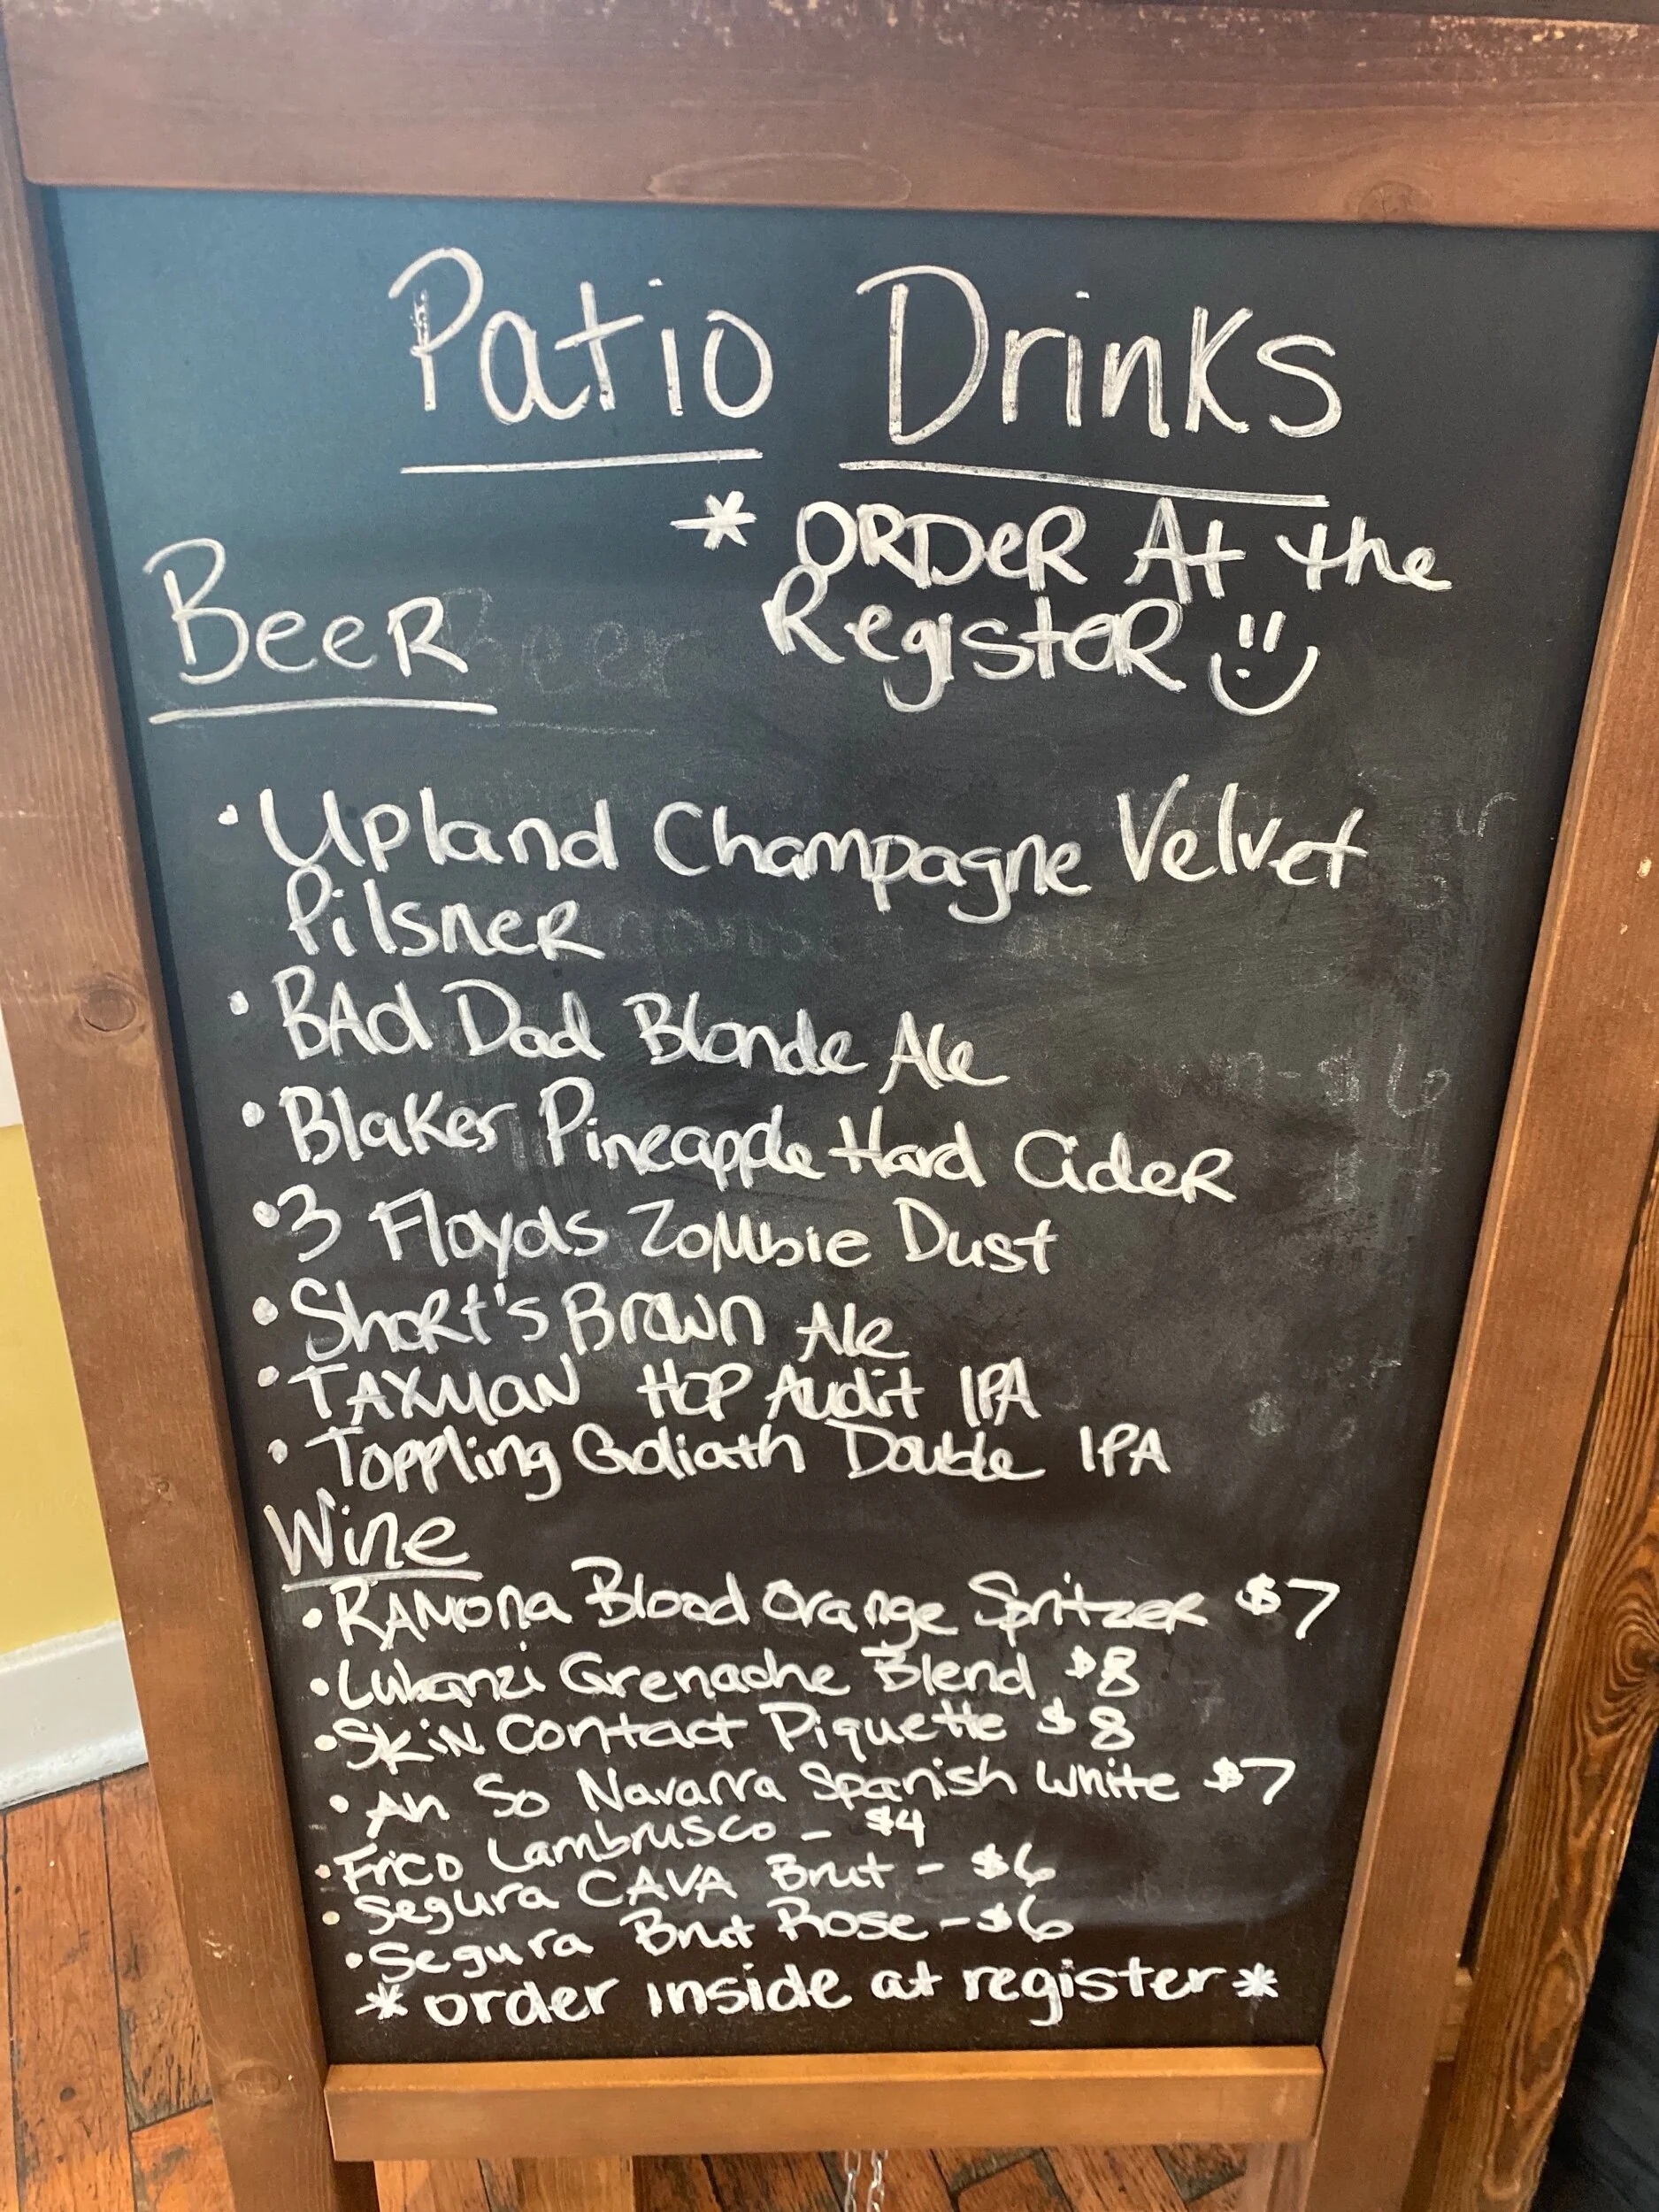 Patio Drinks
* ORDER At the
Register
Beer
• Upland Champagne Velvet
Pilsner
• BAd Dad Blonde Ale
• Blakes Pineapple Hard Cider
• 3 Floyds Zombie Dust
• Short's Brown Ale
• TAXMAN HOP Audit IPA
• Toppling Goliath Double IPA
Wine
• RAMONA Blood Orange Spritzer $7
• Lubanzi Grenache Blend $8
• Skin Contact Piquette $8
• An So Navarra Spanish White $7
• Frico Lambrusco - $4
• Segura CAVA Brut - $6
• Segura Brut Rose - $6
* order inside at register *